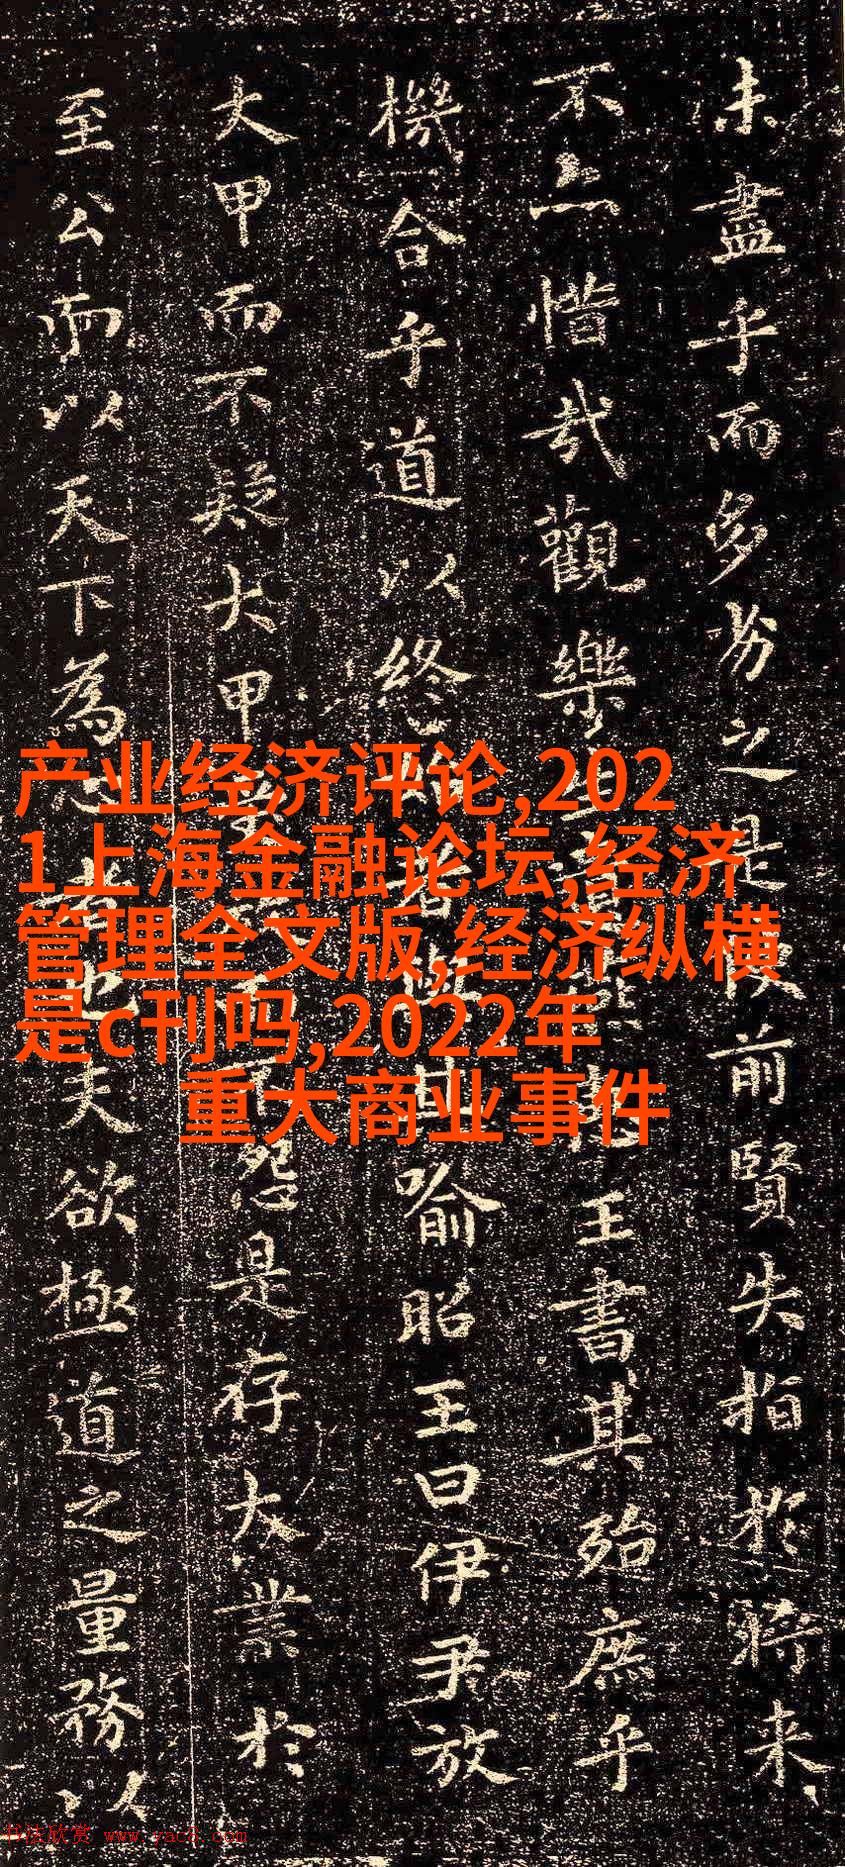 未盡乎而多劣之是使前賢失指於將来
不亦惜哉觀樂生遺燕惠王書其殆庶乎
機合乎道以終始者與其喻昭王曰伊尹放
大甲而不疑大甲受放而不怨是存大業於
至公而以天下為心者也夫欲極道之量務以
产业经济评论,202
1上海金融论坛,经济
管理全文版,经济纵横
是c刊吗,2022年
重大商业事件
书法欣赏 www.yac8.com